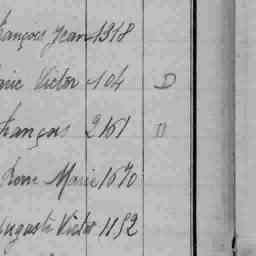 François Jean 1318
Marie Victor 404 D
François 2161 D
Marie 1070
Auguste Victor 1152